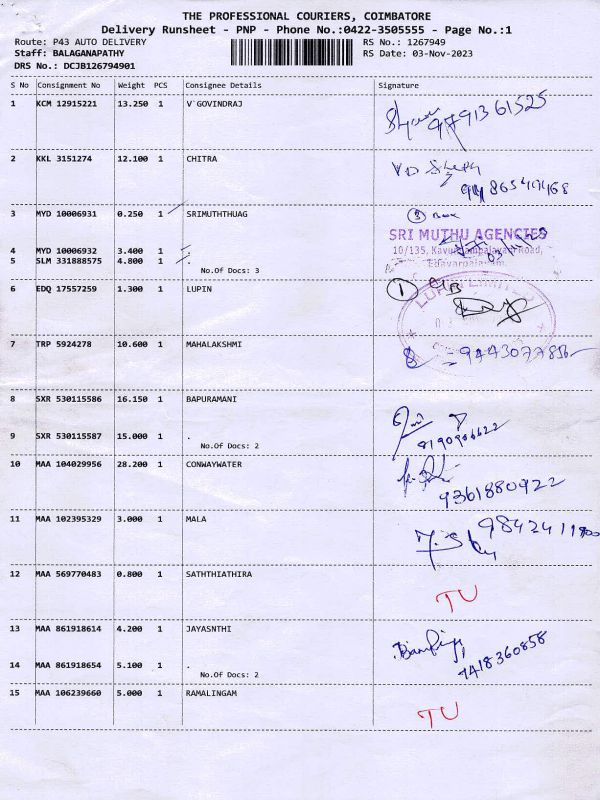 THE PROFESSIONAL COURIERS, COIMBATORE
Delivery Runsheet - PNP - Phone No.:0422-3505555 - Page No.:1
Route: P43 AUTO DELIVERY RS No.: 1267949
Staff: BALAGANAPATHY RS Date: 03-Nov-2023
DRS No.: DCJB126794901
S No Consignment No Weight PCS Consignee Details Signature
1 KCM 12915221 13.250 1 V`GOVINDRAJ
9791361525
2 KKL 3151274 12.100 1 CHITRA
3 MYD 10006931 0.250 1 SRIMUTHTHUAG
3 Box
SRI MUTHU AGENCIES
4 MYD 10006932 3.400 1 .
10/135, Kavundampalayam Road,
5 SLM 331888575 4.800 1 .
Edayarpalayam
No.Of Docs: 3
6 EDQ 17557259 1.300 1 LUPIN
1
LUPIN LIMITED
7 TRP 5924278 10.600 1 MAHALAKSHMI
8 SXR 530115586 16.150 1 BAPURAMANI
8190906622
9 SXR 530115587 15.000 1 .
No.Of Docs: 2
10 MAA 104029956 28.200 1 CONWAYWATER
9361880922
11 MAA 102395329 3.000 1 MALA
12 MAA 569770483 0.800 1 SATHTHIATHIRA
TU
13 MAA 861918614 4.200 1 JAYASNTHI
14 MAA 861918654 5.100 1 .
7418360858
No.Of Docs: 2
15 MAA 106239660 5.000 1 RAMALINGAM
TU